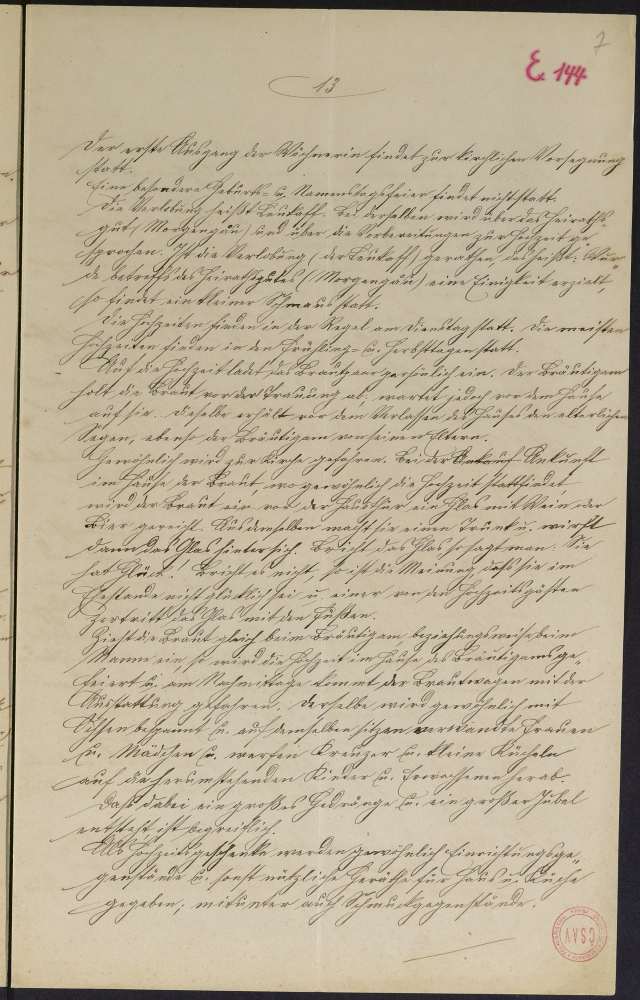 7
E 144
13
Der erste Ausgang der Wöchnerin findet zur kirchlichen Versegnung
statt.
Eine besondere Geburts- u. Namenstagsfeier findet nicht statt.
Die Verlobung heißt Leukaff. Bei derselben wird über das Heiraths-
gut (Morgengau) und über die Vorbereitungen zur Hochzeit ge
sprochen. Ist die Verlobung (der Leukaff) gerathen, das heißt: Wur-
de betreffs des Heirathsgutes (Morgengau) eine Einigkeit erzielt,
so findet ein kleiner Schmaus statt.
Die Hochzeiten finden in der Regel am Dienstag statt. Die meisten
Hochzeiten finden in den Frühling- u. Herbsttagen statt.
Auf die Hochzeit ladet das Brautpaar persönlich ein. Der Bräutigam
holt die Braut vor der Trauung ab, wartet jedoch vor dem Hause
auf sie. Dieselbe erhält vor dem Verlassen des Hauses den elterlichen
Segen, ebenso der Bräutigam von seinen Eltern.
Gewöhnlich wird zur Kirche gefahren. Bei der Ankunft
im Hause der Braut, wo gewöhnlich die Hochzeit stattfindet,
wird der Braut ein vor der Hausthür ein Glas mit Wein oder
Bier gereicht. Aus demselben macht sie einen Trunk u. wirft
dann das Glas hinter sich. Bricht das Glas so sagt man: Sie
hat Glück! Bricht es nicht, so ist die Meinung, daß sie im
Ehestande nicht glücklich sei u. einer von den Hochzeitsgästen
zertritt das Glas mit den Füßen.
Zieht die Braut gleich beim Bräutigam beziehungsweise beim
Manne ein so wird die Hochzeit im Hause des Bräutigams ge-
feiert u. am Nachmittage kommt der Brautwagen mit der
Ausstattung gefahren. Derselbe wird gewöhnlich mit
Ochsen bespannt u. auf demselben sitzen verwandte Frauen
u. Mädchen u. werfen Kreuzer u. kleine Kücheln
auf die herumstehenden Kinder u. Erwachsenen herab.
Daß dabei ein großes Gedränge u. ein großer Jubel
entsteht, ist begreiflich.
Als Hochzeitsgeschenke werden gewöhnlich Einrichtungsge-
genstände u. sonst nützliche Geräthe für Haus u. Küche
gegeben; mitunter auch Schmuckgegenstände.
ČSAV